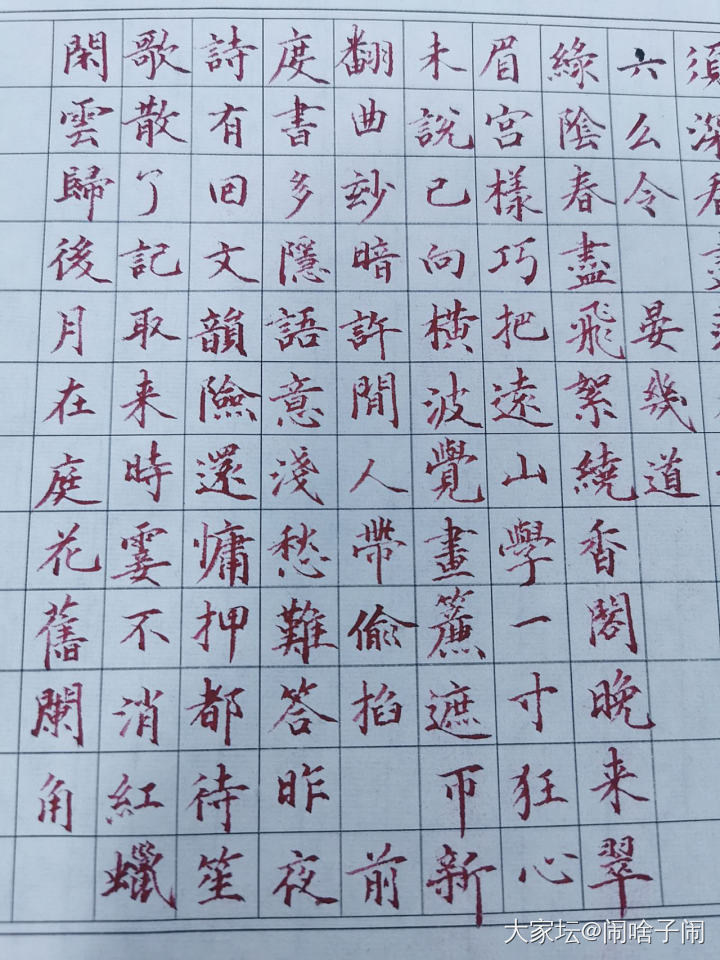 須深
六么令 晏幾道
綠陰春盡飛絮繞香閣晚来翠
眉宮樣巧把遠山學一寸狂心
未說已向橫波覺畫簾遮帀新
翻曲玅暗許閒人帶偷掐 前
度書多隱語意淺愁難答昨夜
詩有回文韻險還慵押都待笙
歌散了記取来時霎不消紅蠟
閑雲歸後月在庭花舊闌角
大家坛@闹啥子闹